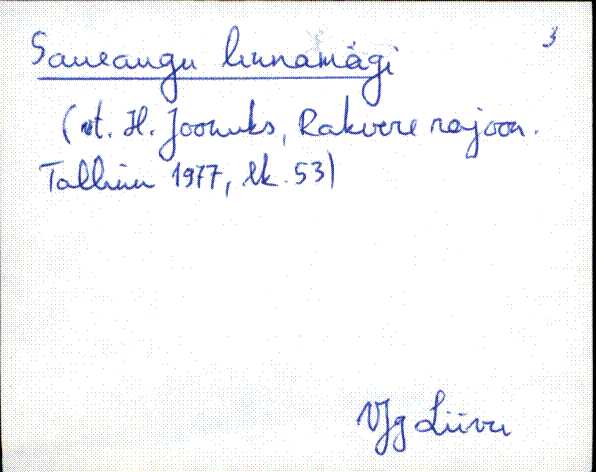 3
Saueaugu linnamägi
(vt. H. Joonuks, Rakvere rajoon.
Tallinn 1977, lk. 53)
VJg Liiva